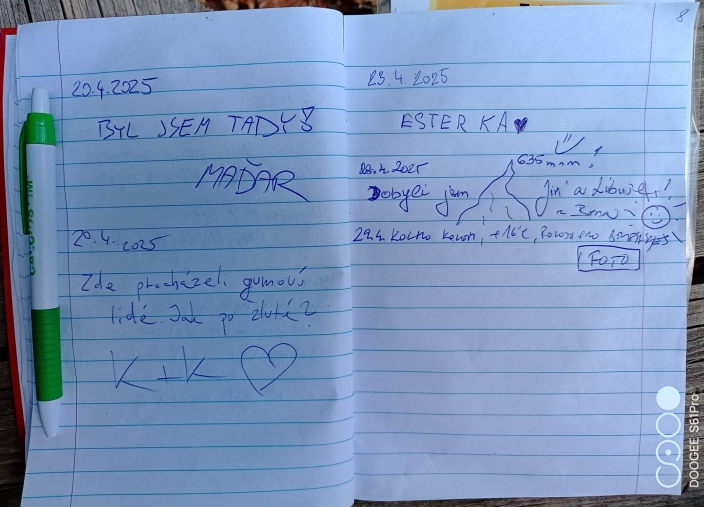 20.4.2025
BYL JSEM TADY!
MAĎAR
20.4.2025
Zde procházeli gumoví
lidé. Jak po žluté?
K + K
8
23.4.2025
ESTERKA
28.4.2025
635 m n m!
Dobyli jsm
Jiří a Libuše!
z Brna
29.4. +16°C,
FOTO
DOOGEE S61Pro